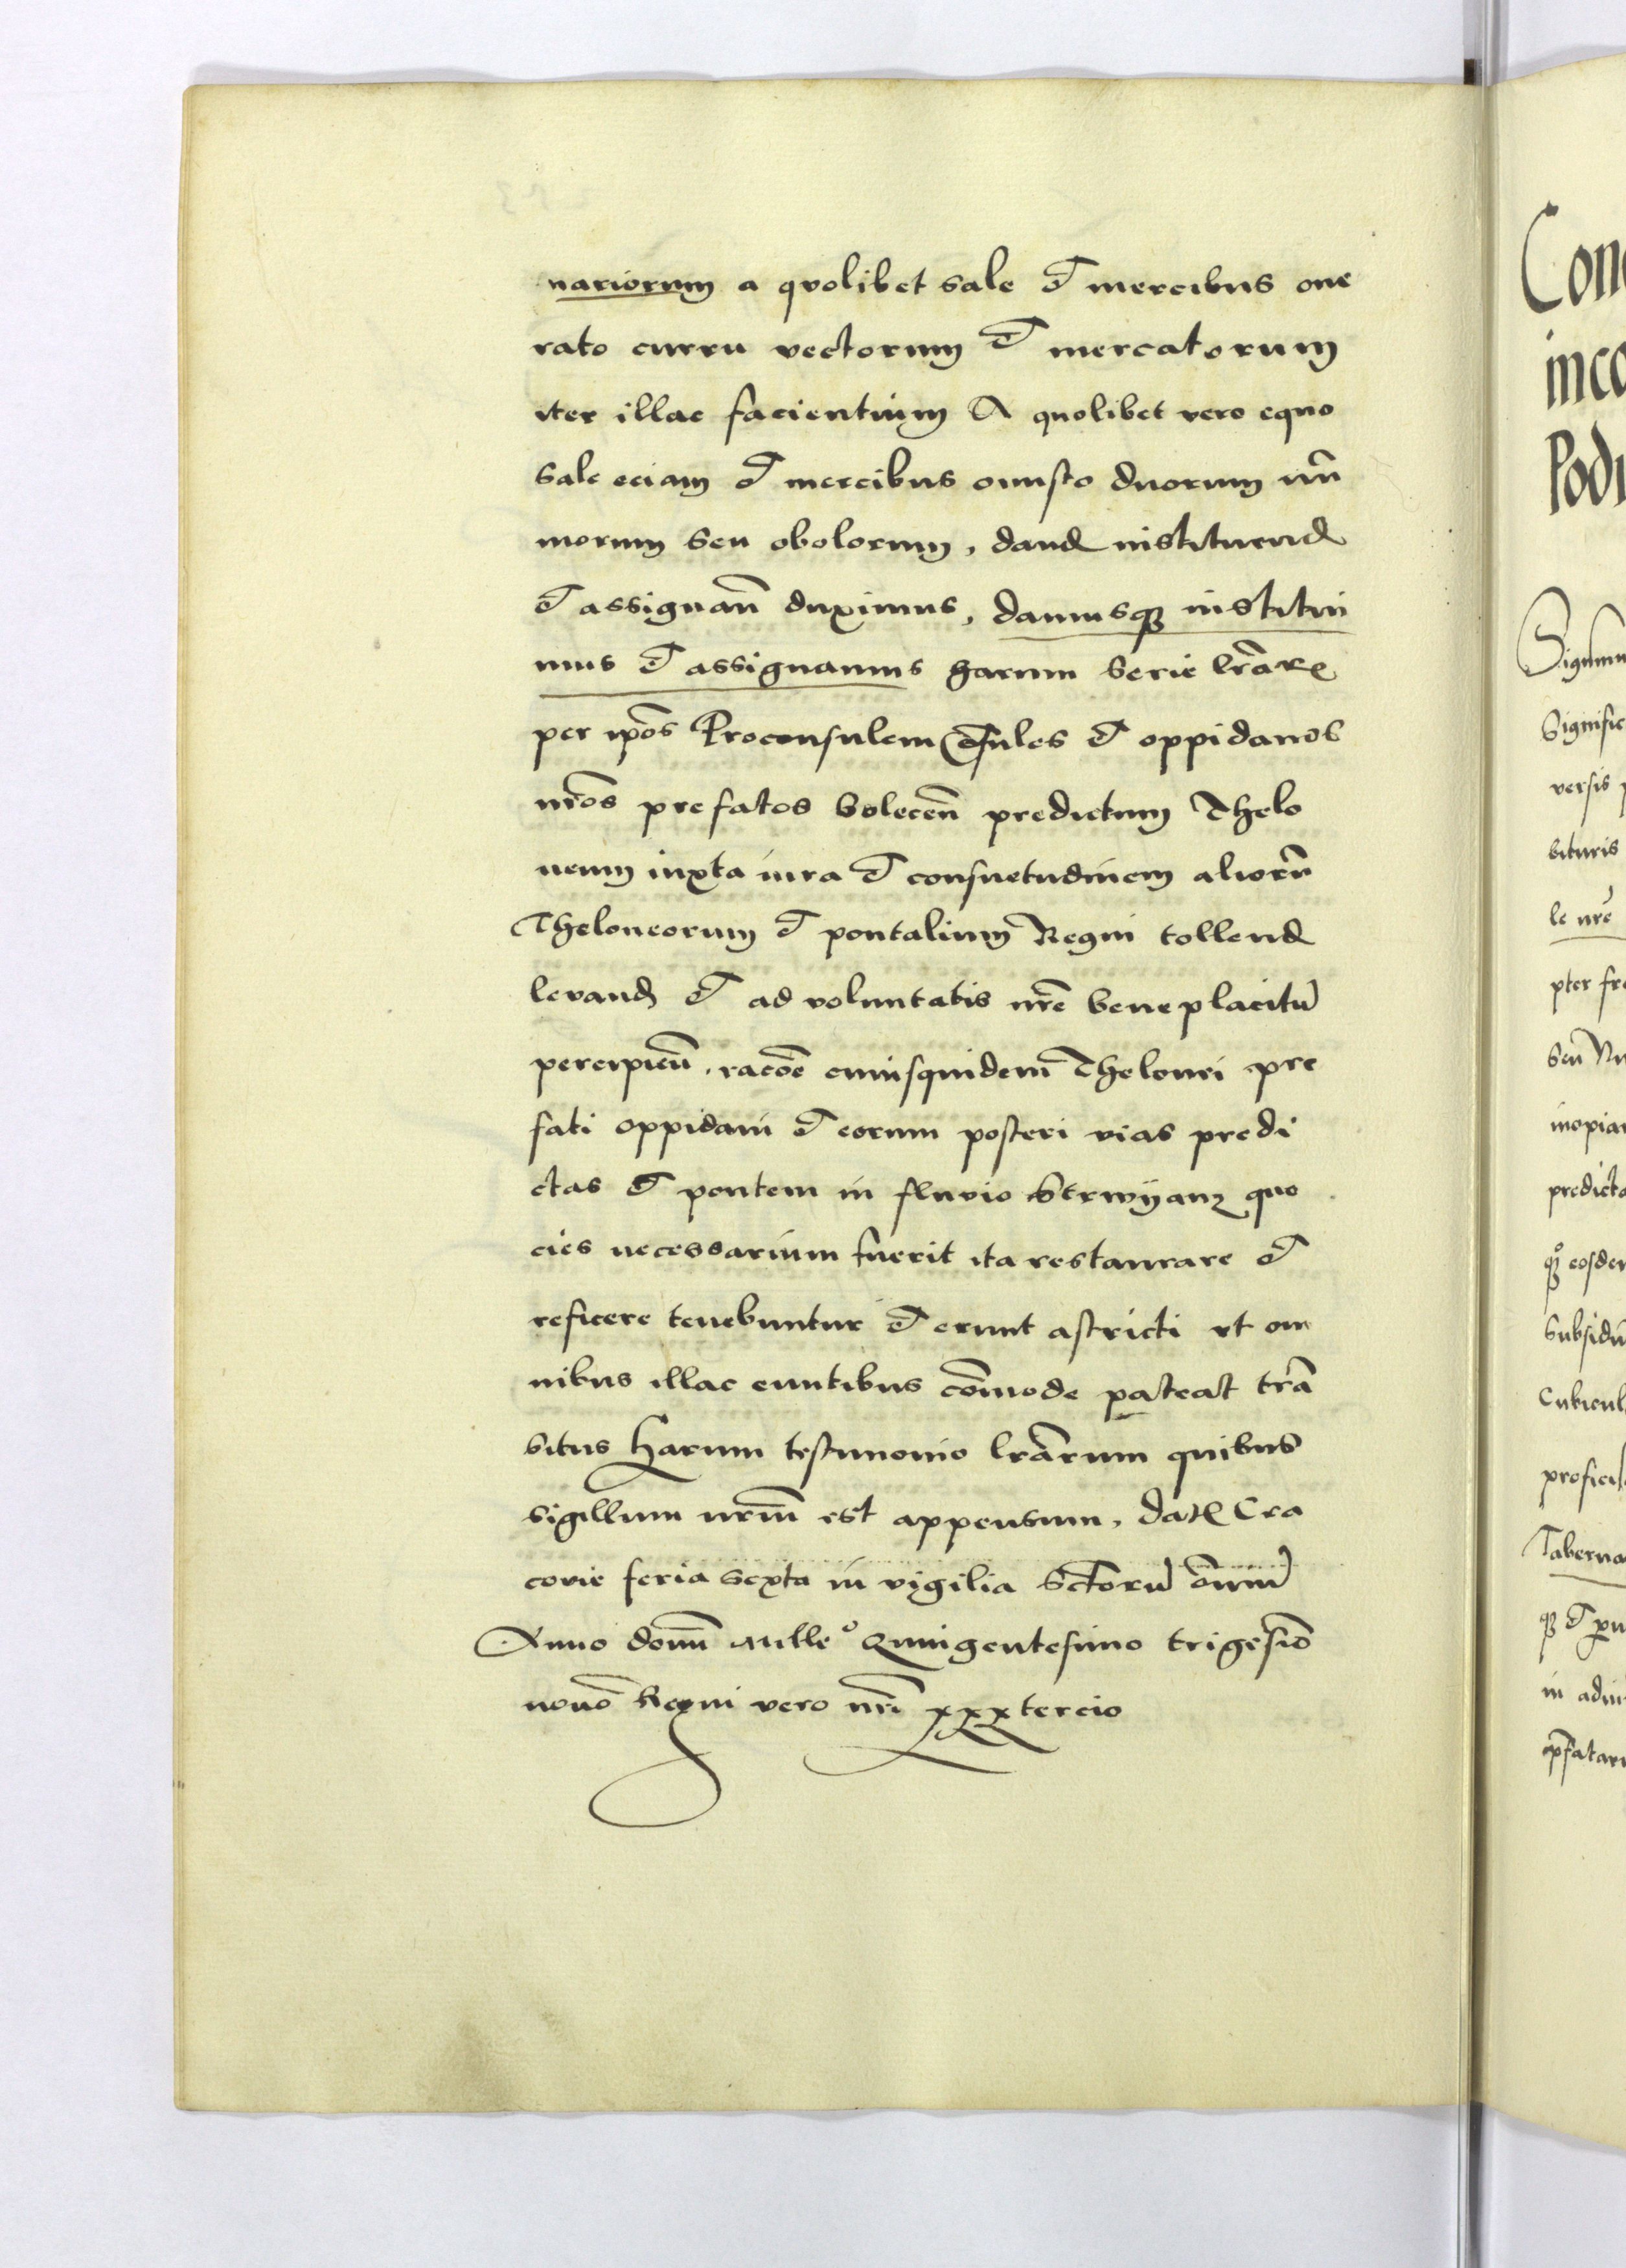 nariorum a quolibet sale et mercibus one
rato curru vectorum et mercatorum
iter illac facientium A quolibet vero equo
sale eciam et mercibus onusto duorum nu̅
morum seu obolorum, dand instituend
et assignan̅ duximus, damusq instituі
mus et assignamus harum serie l̅rar
per ip̅os Proconsulem Co̅sules et oppidanos
nr̅os prefatos Solecen̅ predictum Thelo
neum iuxta iura et consuetudinem alioru̅
Theloneorum et pontalium Regni tollend
levand et ad voluntatis nr̅e beneplacitu̅
percipien̅, rac̅o̅e cuiusquidem Thelonei pre
fati oppidani et eorum posteri vias predi
ctas et pontem in fluvio Strwyanz quo
cies necessarium fuerit ita restaurare et
reficere tenebuntur et erunt astricti ut om
nibus illac euntibus co̅mode pateat tra̅
situs Harum testimonio l̅rarum quibus
sigillum nr̅um est appensum, Dat Cra
covie feria sexta in vigilia Sctoru̅ om̅iu̅
Anno domi̅ Mille° Quingentesimo trigesi̅o
nono Regni vero nr̅i xxxtercio
Con
inco
Podu
Signum
Signific
versis
bituris
le nr̅e
pter fre
seu Nu
inopia
predicto
eosdem
Subsidu̅
Cubicul
profici
Taberna
in adiu
p̅fatar